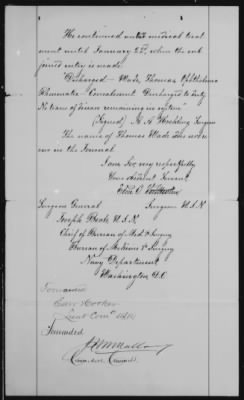 He continued under medical treat
ment until January 22d, when the sub
joined entry is made.
"Discharged - Wade, Thomas
Rheumatic Discharged to duty
No trace of disease remaining in system"
(Signed) Surgeon
The name of Thomas Wade does not re
cur in the Journal.
I am Sir, very respectfully
Your obedient Servant
Surgeon U.S.N.
Surgeon General
Joseph Beale U.S.N.
Chief of Bureau of Med & Surgery
Bureau of Medicine & Surgery
Navy Department
Washington D.C.
Forwarded
Hooker
Lieut Com'r
Forwarded